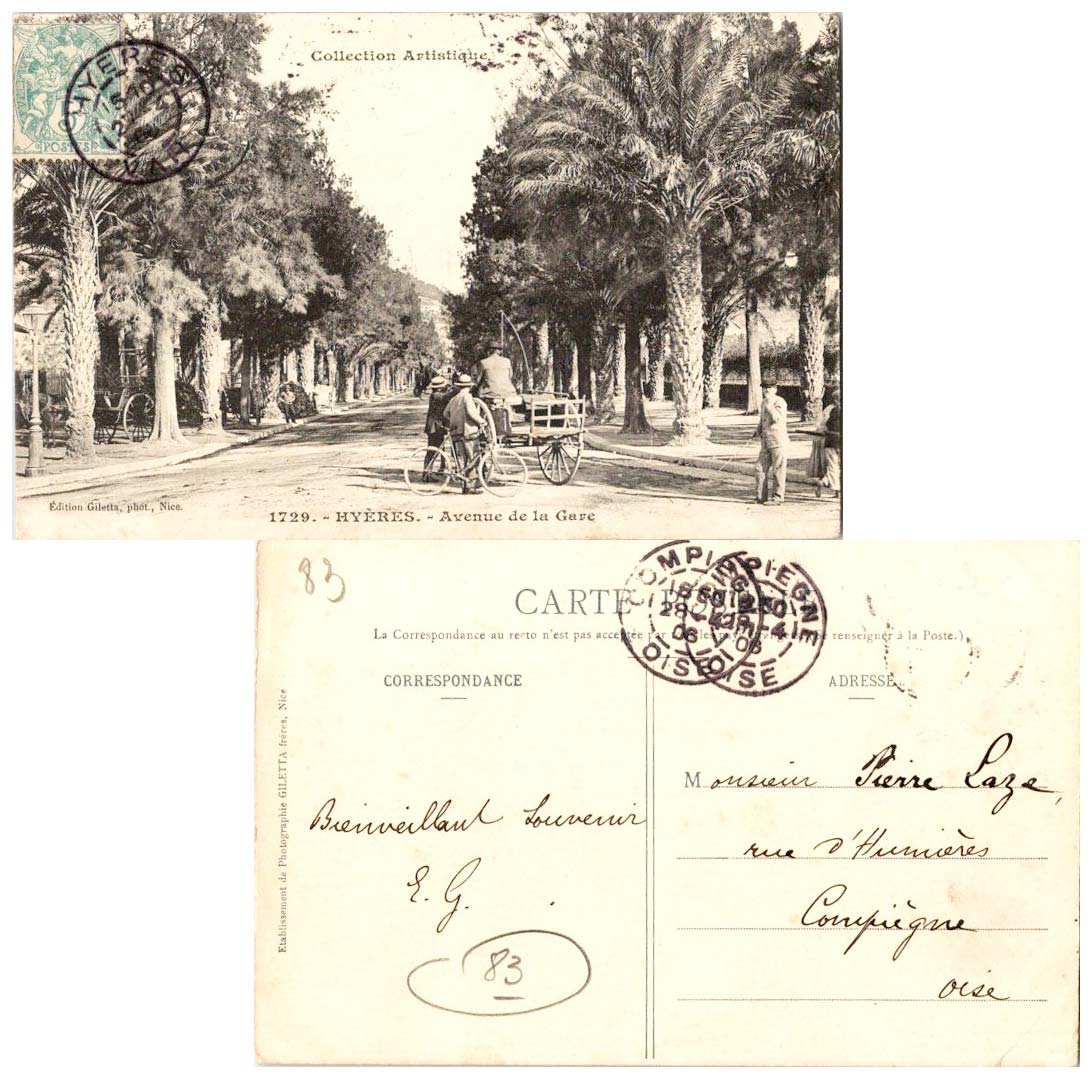 Collection Artistique
HYERES
VAR
POSTES
Édition Giletta, phot., Nice.
1729. - HYÈRES. - Avenue de la Gare
83
CARTE
La Correspondance au recto n'est pas acceptée par renseigner à la Poste.)
COMPIEGNE
OISE
COMPIEGNE
OISE
CORRESPONDANCE
ADRESSE
Etablissement de Photographie GILETTA frères, Nice
Bienveillant Souvenir
E. G.
83
Monsieur Pierre Laze,
rue d'Humières
Compiègne
oise